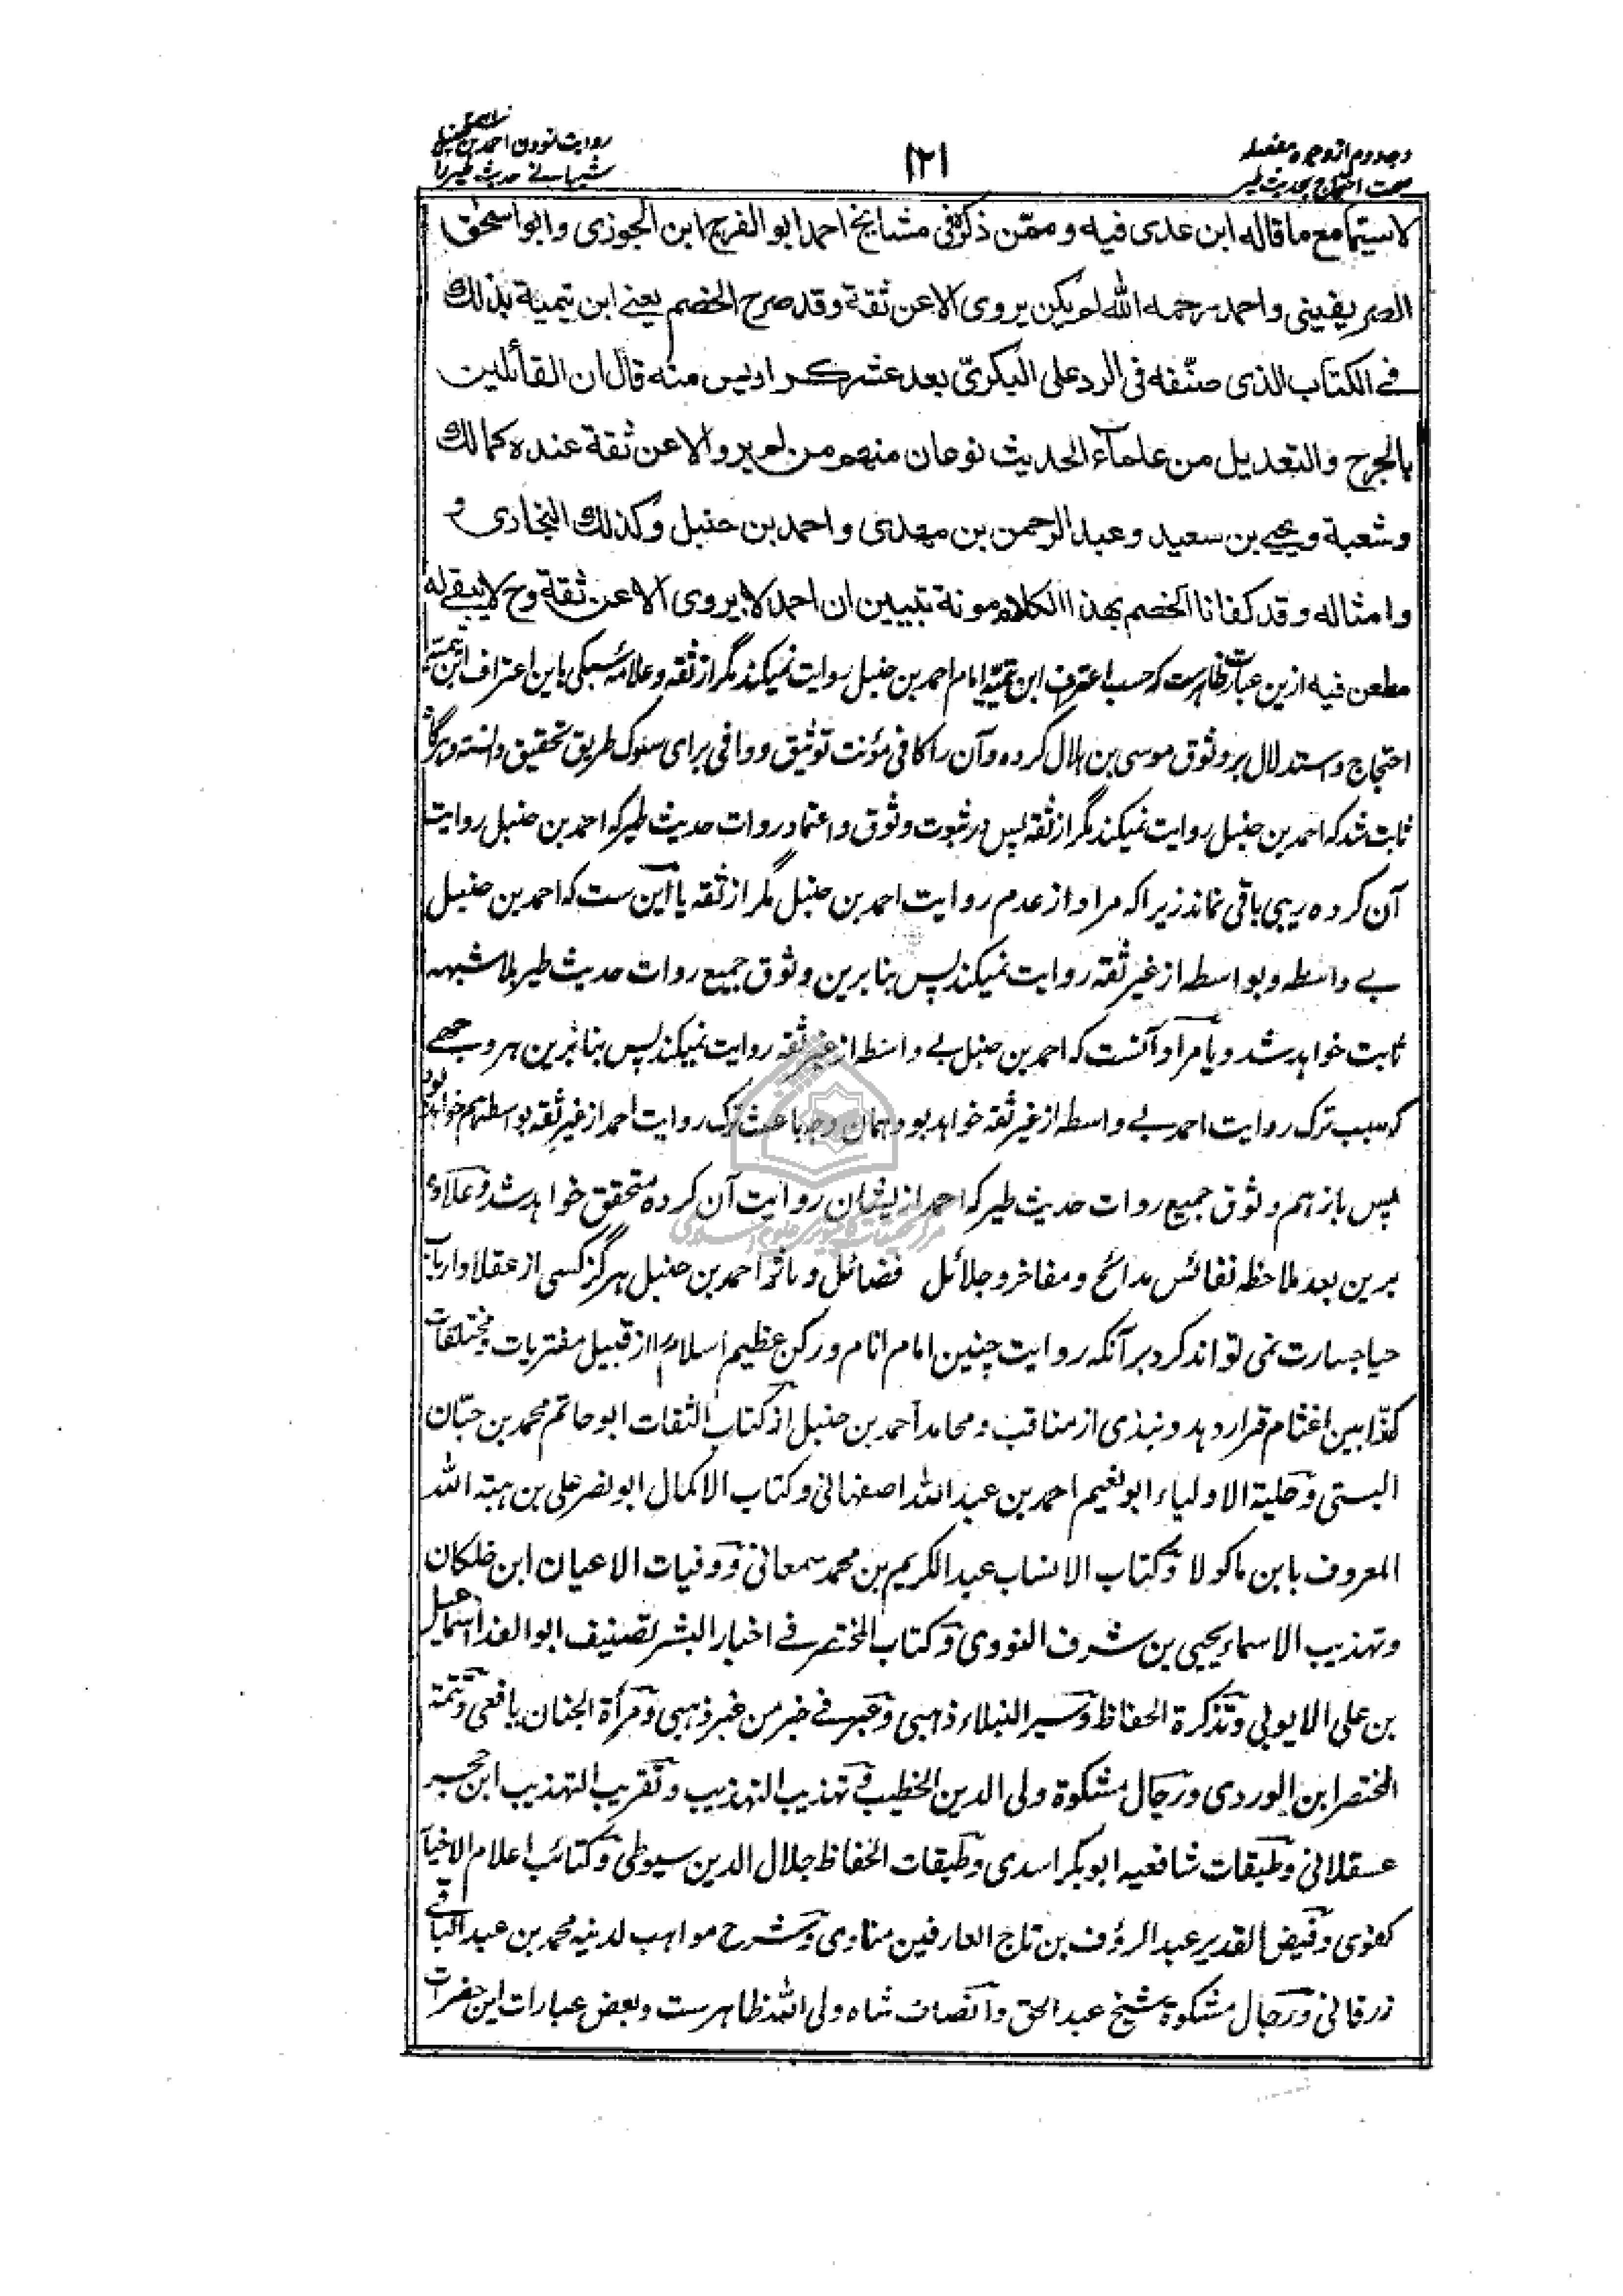 وجه دوم از وجوه مفصله
صحت احتجاج بحدیث طیر
۱۲۱
روایت نمودن احمد بن حنبل
شیبانے حدیث طیر را
لا سیّما مع ما قاله ابن عدی فیه و ممّن ذکره فی مشایخ احمد ابو الفرج ابن الجوزی و ابو اسحٰق
الصریفینی و احمد رحمه الله لم یکن یروی الا عن ثقة و قد صرح الخصم یعنے ابن تیمیة بذلك
فے الکتاب الذی صنّفه فی الرد علی البکریّ بعد عشر کراریس منه قال ان القائلین
بالجرح والتعدیل من علماء الحدیث نوعان منهم من لم یرو الا عن ثقة عنده کمالك
و شعبة و یحیے بن سعید و عبد الرحمن بن مهدی و احمد بن حنبل و کذلك البخاری و
و امثاله و قد کفانا الخصم بهذا الکلام مونة تبیین ان احمد لا یروی الا عن ثقة وح لا یبقے له
مطعن فیه ازین عبارت ظاهرست که حسب اعتراف ابن تیمیّه امام احمد بن حنبل روایت نمیکند مگر از ثقه و علامه سبکی باین اعتراف ابن تیمیه
احتجاج و استدلال بر وثوق موسی بن هلال کرده و آن را کافی مؤنت توثیق و وافی برای سلوک طریق تحقیق دانسته و هرگاه
ثابت شد که احمد بن حنبل روایت نمیکند مگر از ثقه پس در ثبوت وثوق و اعتماد روات حدیث طیر که احمد بن حنبل روایت
آن کرده ریبی باقی نماند زیرا که مراد از عدم روایت احمد بن حنبل مگر از ثقه یا این ست که احمد بن حنبل
بے واسطه و بواسطه از غیر ثقه روایت نمیکند پس بنابرین وثوق جمیع روات حدیث طیر بلا شبهه
ثابت خواهد شد و یا مراد آنست که احمد بن حنبل بے واسطه از غیر ثقه روایت نمیکند پس بنابرین هر وجهے
که سبب ترک روایت احمد بے واسطه از غیر ثقه خواهد بود همان وجه باعث ترک روایت احمد از غیر ثقه بواسطه هم خواهد بود
پس باز هم وثوق جمیع روات حدیث طیر که احمد از ایشان روایت آن کرده متحقق خواهد شد و علاوه
برین بعد ملاحظه نفائس مدائح و مفاخر و جلائل فضائل و مآثر احمد بن حنبل هرگز کسی از عقلا و ارباب
حیا جسارت نمی تواند کرد بر آنکه روایت چنین امام انام و رکن عظیم اسلام را از قبیل مفتریات و مختلقات
کذّابین اغثام قرار دهد و نبذی از مناقب و محامد احمد بن حنبل از کتاب الثقات ابو حاتم محمد بن حبّان
البستی و حلیة الاولیاء ابو نعیم احمد بن عبد الله اصفهانی و کتاب الاکمال ابو نصر علی بن هبة الله
المعروف بابن ماکولا و کتاب الانساب عبد الکریم بن محمد سمعانی و وفیات الاعیان ابن خلکان
و تهذیب الاسماء یحیی بن شرف النووی و کتاب المختصر فے اخبار البشر تصنیف ابو الفدا اسماعیل
بن علی الایوبی و تذکرة الحفاظ و سیر النبلاء ذهبی و عبر فے خبر من غبر ذهبی و مرآة الجنان یافعی و تتمة
المختصر ابن الوردی و رجال مشکوة ولی الدین الخطیب و تهذیب التهذیب و تقریب التهذیب ابن حجر
عسقلانی و طبقات شافعیه ابو بکر اسدی و طبقات الحفاظ جلال الدین سیوطی و کتائب اعلام الاخیار
کفوی و فیض القدیر عبد الرؤف بن تاج العارفین مناوی و شرح مواهب لدنیه محمد بن عبد الباقے
زرقانی و رجال مشکوة شیخ عبد الحق و انصاف شاه ولی الله ظاهرست و بعض عبارات این حضرات
مرکز تحقیقات کامپیوتری علوم اسلامی